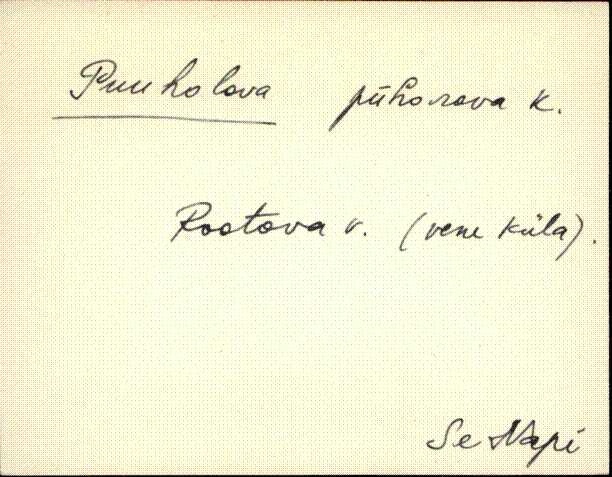 Puuholova pühorova k.
Rootova v. (vene küla).
Se Napi